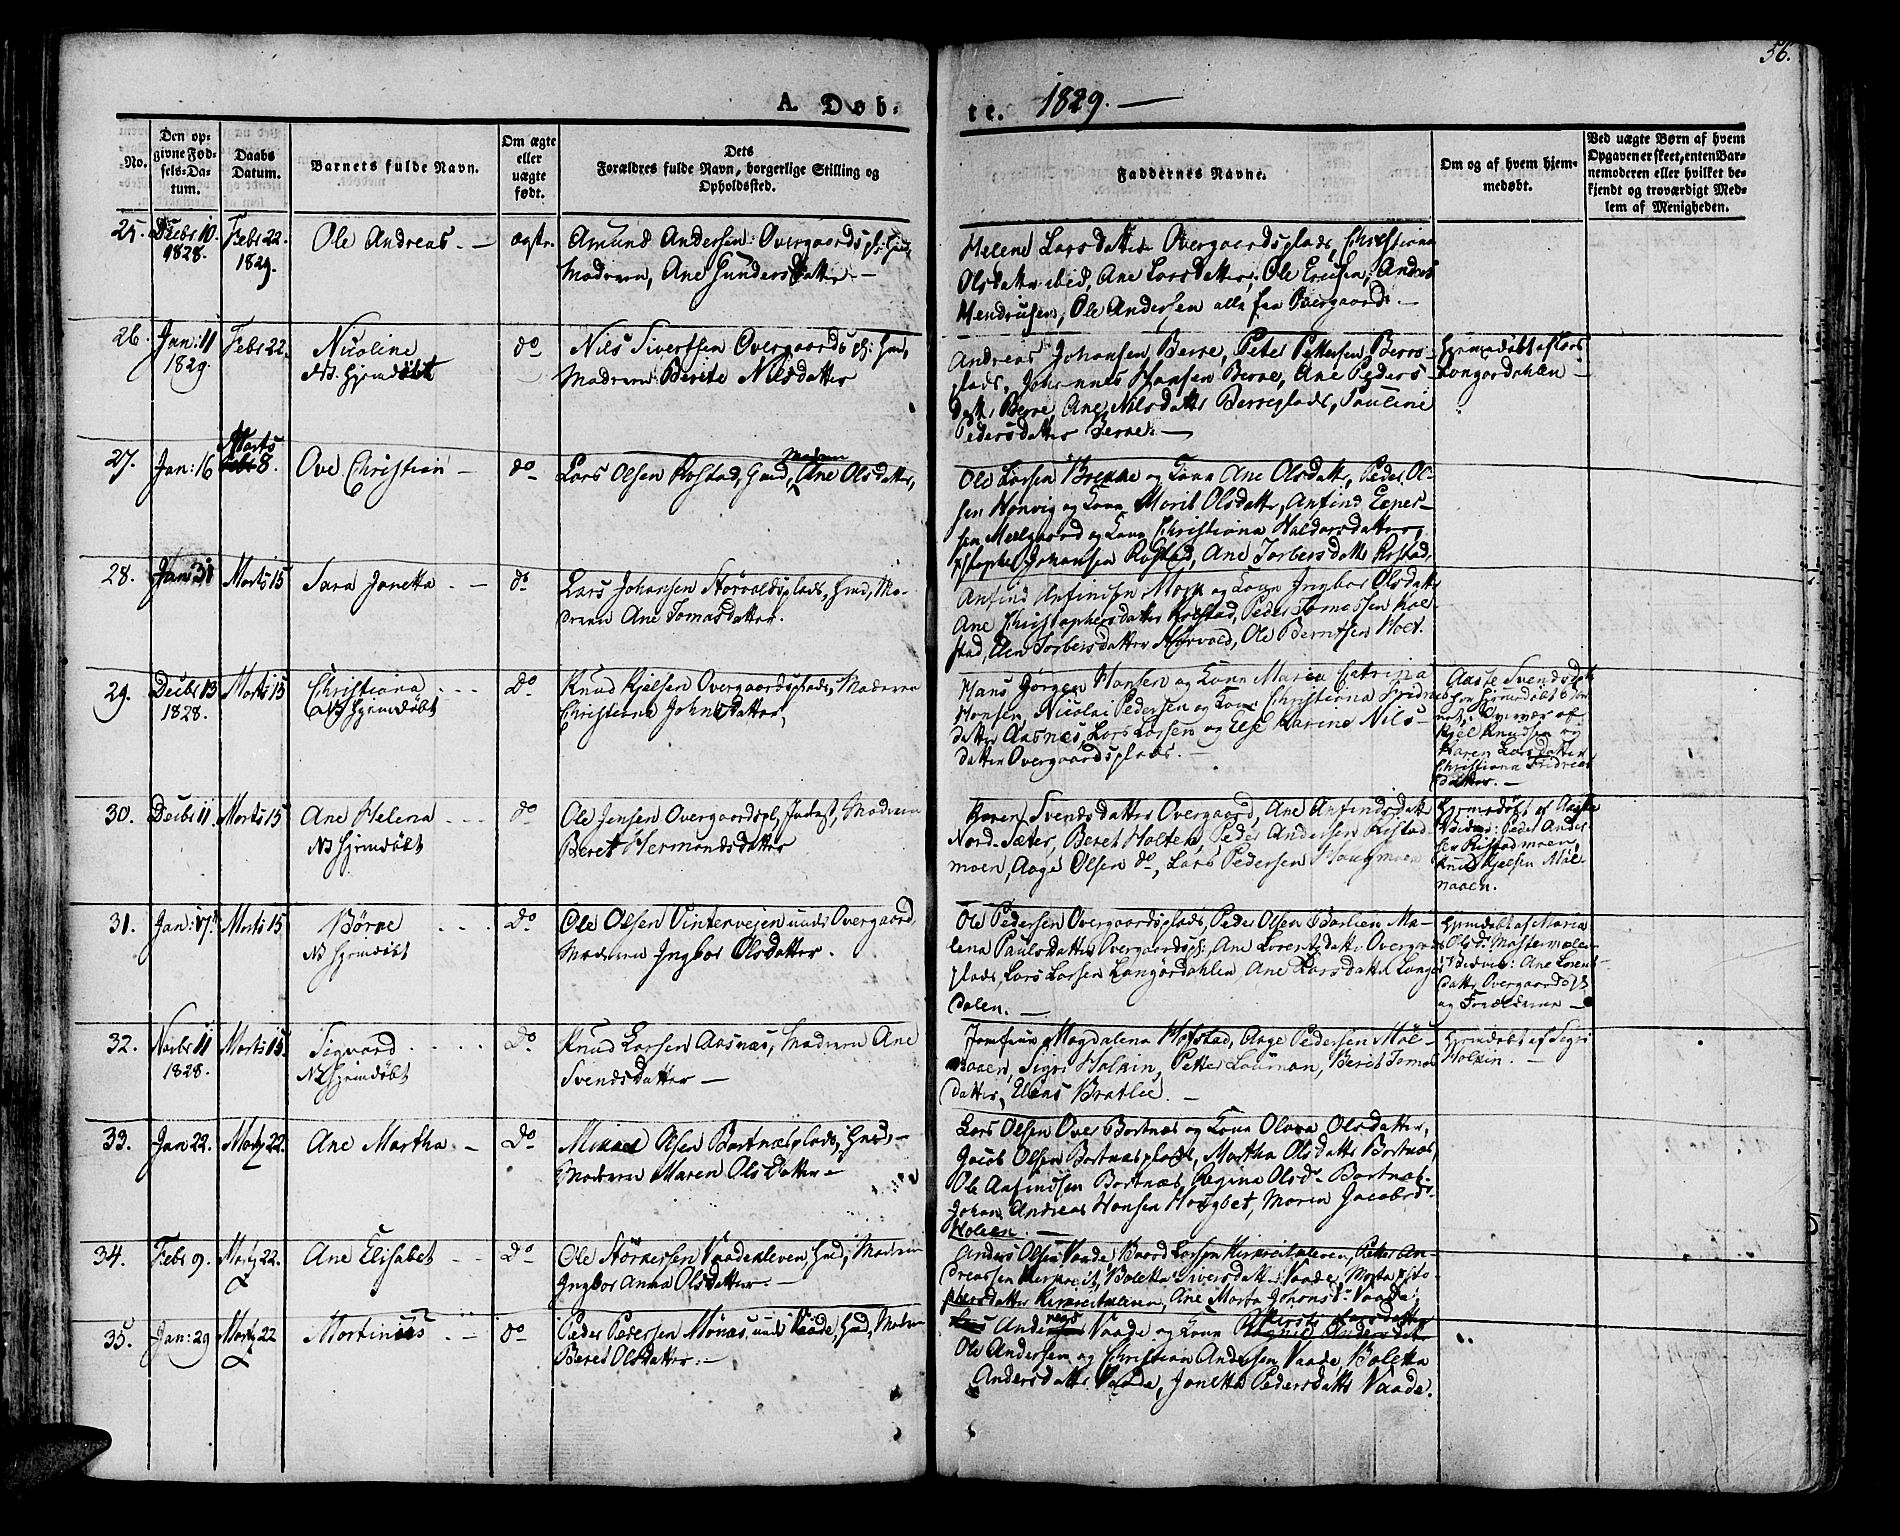 56.
A. Døb-
te. 1829. —
No.
Den op-
givne Fød-
sels-Da-
tum.
Daabs
Datum.
Barnets fulde Navn.
Om ægte
eller
uægte
født.
Dets
Forældres fulde Navn, borgerlige Stilling og
Opholdssted.
Faddernes Navne.
Om og af hvem hjem-
medøbt.
Ved uægte Børn af hvem
Opgaven er skeet, enten Bar-
nemoderen eller hvilket be-
kjendt og troværdigt Med-
lem af Menigheden.
25. Decbr 10 1828. Febr 22. 1829. Ole Andreas. — ægte.
Amund Andersen Overgaards
Moderen, Ane Gundersdatter —
Helene Larsdatter Overgaardsplads, Christiana
Olsdatter ibid, Ane Larsdatter, Ole Andreas
Ole Andersen alle fra Overgaard. —
26. Jan: 11 1829. Febr 22. Nicoline
NB. Hjemdøbt
do
Nils Sivertsen Overgaards pl: Hmd,
Moderen Berite Nilsdatter
Andreas Johansen Berre, Peter Pettersen Berre-
plads, Johannes Hansen Berre, Ane Peders-
datter Berre, Ane Nilsdatter Berreplads, Pauline
Pedersdatter Berre. —
Hjemdøbt af Lars
Langørdahlen —
27. Jan: 16 Marts 8. Ove Christian — do
Lars Olsen Rostad, Hmd, Moderen Ane Olsdatter,
Ole Larsen Brenne og Kone Ane Olsdatter, Peder Ol-
sen Hønvig og Kone Marit Olsdatter, Anfind Esper-
sen Meelgaard og Kone Christiana Haldorsdatter,
Johansen Rostad, Ane Torbersdatter Rostad.
28. Jan 31 Marts 15 Sara Janetta — do
Lars Johansen Størvoldsplads, Hmd, Mo-
deren Ane Tomasdatter.
Anfind Anfindsen Moen og Kone Ingbor Olsdatter
Ane Christophersdatter Rostad, Peder Tomassen Hol-
stad, Elen Torbersdatter Størvold, Ole Berntsen Holt.
29. Decbr 13 1828. Marts 15 Christiana
NB Hjemdøbt
Do
Knud Kjelsen Overgaardsplads, Moderen
Christiana Johnsdatter,
Hans Jørgen Hansen og Kone Maria Catrina
Hansen, Nicolai Pedersen og Kone Christiana Fridrics
datter Aasnes, Lars Larsen og Else Karine Nils-
datter Overgaardsplads. —
Aaste Svendsdatter
Kjel Knudsen og
Karen Larsdatter
Christiana Fridrics
datter. —
30. Decbr 11. Marts 15 Ane Helena
NB Hjemdøbt
do
Ole Jensen Overgaardspl, Inderst, Moderen
Beret Hermandsdatter
Karen Svendsdatter Overgaard, Ane Anfindsdatter
Nord-Sæter, Beret Holten, Peder Andersen Rostad-
moen, Aage Olsen do, Lars Pedersen Haugmoen
Hjemdøbt af Aaste
Peder Ander
sen Rostadmoen,
Knud Kjelsen Møl-
naaen.
31. Jan: 17. Marts 15 Børre
NB Hjemdøbt
Do
Ole Olsen Vintervejen und Overgaard,
Moderen Ingbor Olsdatter.
Ole Pedersen Overgaardsplads, Peder Olsen Barlien Ma-
lena Paulsdatter Overgaardspl: Ane Lorentsdatter Overgaards
plads, Lars Larsen Langørdahlen Ane Larsdatter Langør
dalen. —
Hjemdøbt af Maria
Olsd:
Ane Lorents
datter Overgaardspl:
og Forældrene —
32. Novbr 11 1828. Marts 15. Sigvard
NB Hjemdøbt
Do
Knud Larsen Aasnæs, Moderen Ane
Svendsdatter —
Jomfrue Magdalena Hofstad, Aage Pedersen Møl-
naaen, Sigri Holmin, Petter Lauman, Beret Tomas
datter, Elias Bratlie. —
Hjemdøbt af Sigri
Holmin. —
33. Jan 22. Marts 22. Ane Martha — Do
Mikael Olsen Bartnæsplads, Hmd, —
Moderen Maren Olsdatter —
Lars Olsen Over Bartnæs og Kone Olava Olsdatter,
Jacob Olsen Bartnæsplads, Martha Olsdatter Bartnæs,
Ole Anfindsen Bartnæs, Regina Olsd. Bartnæs
Johan Andreas Hansen Maren Jacobsd.
Holmen. —
34. Febr 9. Marts 22. Ane Elisabet — Do
Ole Størkersen Vaadekleven, Hmd, Moderen
Ingbor Anna Olsdatter. —
Anders Olsen Vaade, Baard Larsen Kirkreitkleven, Peter An-
dreassen Kirkreit, Boletta Siversdatter Vaade, Marta Risto-
phersdatter Kirkreitkleven, Ane Marta Johansd. Vaade,
35. Jan: 29 Marts 22 Martinus — do
Peder Pedersen Mønæs, und Vaade, Hmd, Moderen
Beret Olsdatter. —
Vaade og Kone Larsdatter
Ole Andersen og Christian Andersen Vaade, Boletta
Andersdatter Vaade, Janetta Pedersdatter Vaade.